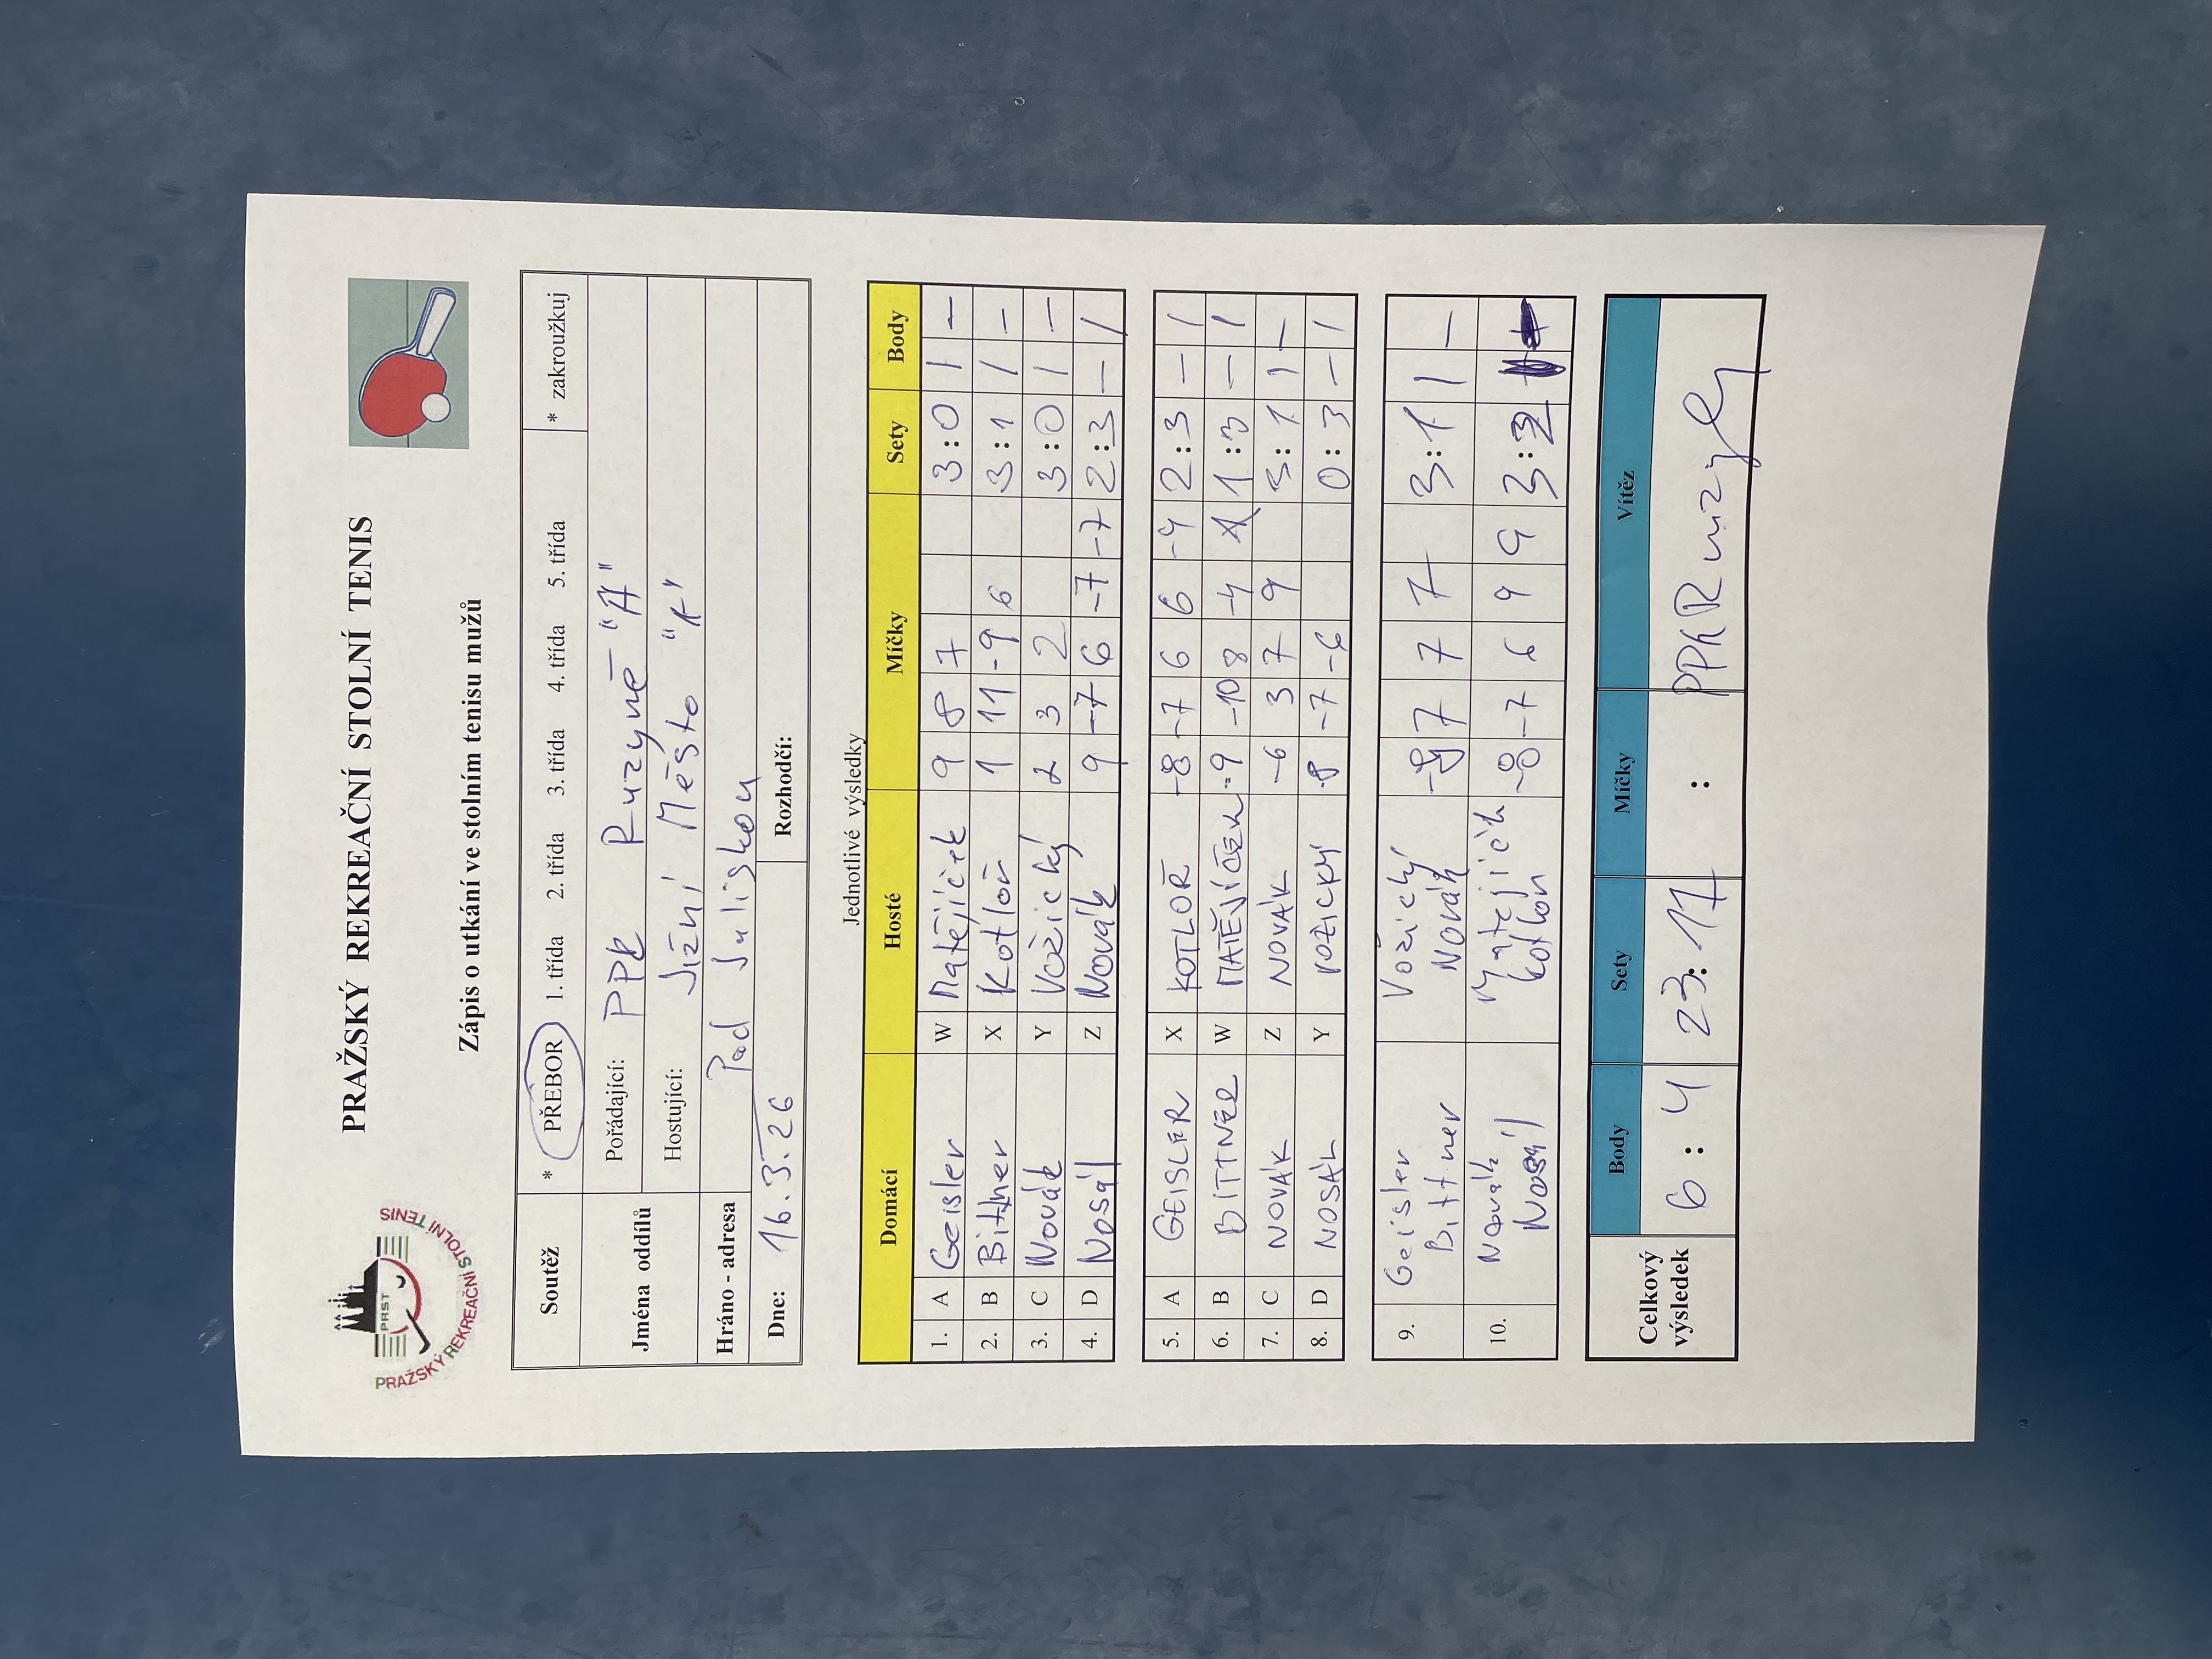 PRAŽSKÝ REKREAČNÍ STOLNÍ TENIS
PRST
PRAŽSKÝ REKREAČNÍ STOLNÍ TENIS
Zápis o utkání ve stolním tenisu mužů
Soutěž * PŘEBOR 1. třída 2. třída 3. třída 4. třída 5. třída * zakroužkuj
Jména oddílů
Pořádající: PPR Ruzyně "A"
Hostující: Jižní Město "A"
Hráno - adresa Pod Juliskou
Dne: 16.3.26 Rozhodčí:
Jednotlivé výsledky
Domácí Hosté Míčky Sety Body
1. A Geisler W Matějíček 9 8 7 3:0 1 –
2. B Bittner X Kotloř 1 11 -9 6 3:1 1 –
3. C Novák Y Vožický 2 3 2 3:0 1 –
4. D Nosál Z Novák 9 -7 6 -7 -7 2:3 – 1
5. A GEISLER X KOTLOŘ -8 -7 6 6 -4 2:3 – 1
6. B BITTNER W MATĚJÍČEK -9 -10 8 -4 1:3 – 1
7. C NOVÁK Z NOVÁK -6 3 7 9 3:1 1 –
8. D NOSÁL Y VOŽICKÝ -8 -7 -6 0:3 – 1
9. Geisler Bittner Vožický Novák 7 7 7 3:1 1 –
10. Novák Nosál Matějíček Kotloř -8 -7 6 9 9 3:2
Celkový výsledek
Body Sety Míčky Vítěz
6:4 23:17 : PPR Ruzyně